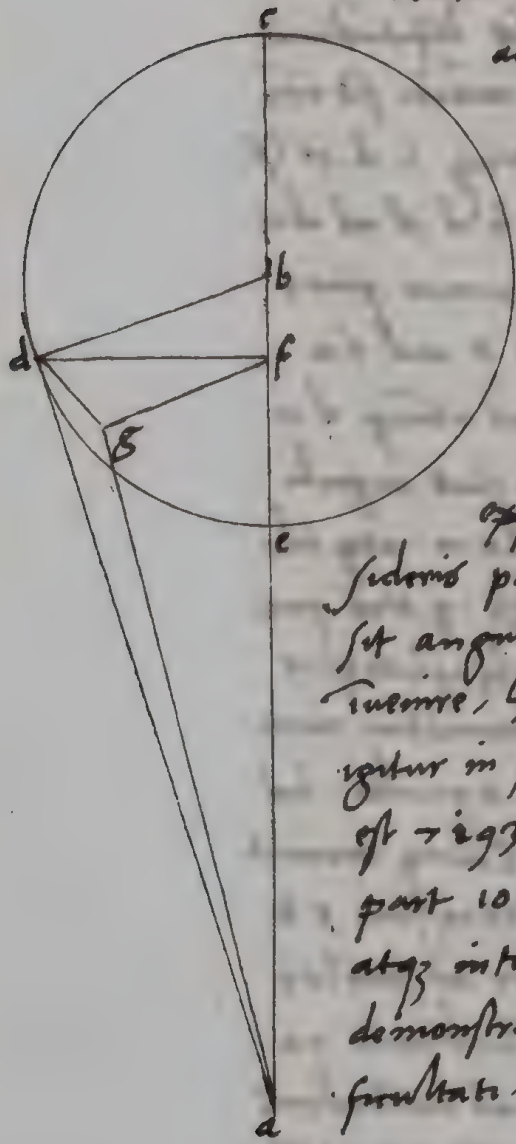 c
b
d
f
g
e
sideris
sit angu
inuenire,
igitur in
est 7193
part 10
atq3 inte
demonstr
ficultati
a